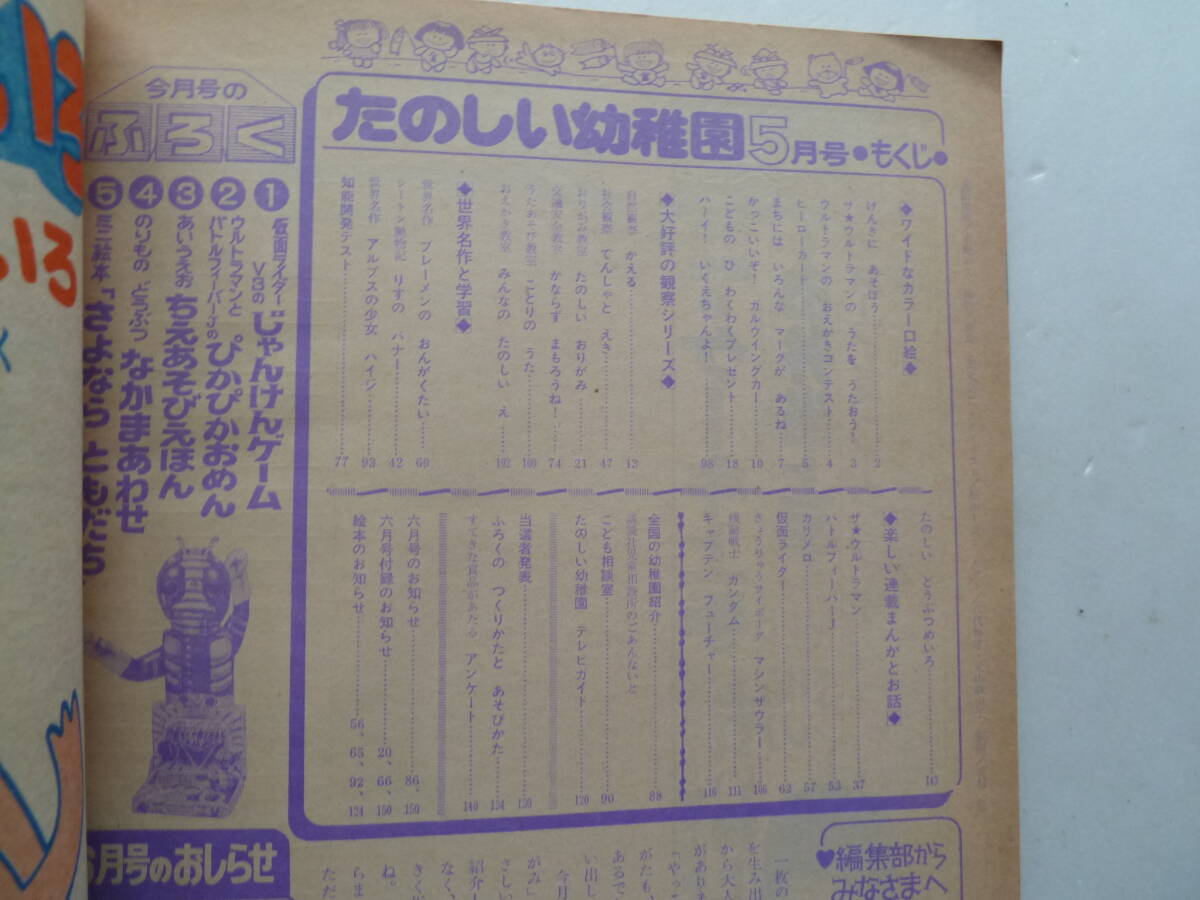 たのしい幼稚園5月号●もくじ●
◆ワイドなカラー口絵◆
けんきに あそぼう 2
ザ★ウルトラマンの うたを うたおう! 3
ウルトラマンの おえかきコンテスト 4
ヒーローカード 5
まちには いろんな マークが あるね 7
かっこいいぞ! ガルウイングカー 10
こどもの ひ わくわくプレゼント 18
ハーイ! いくえちゃんよ! 98
◆大好評の観察シリーズ◆
自然観察 かえる 13
社会観察 てんしゃと えき 47
おりがみ教室 たのしい おりがみ 21
交通安全教室 かならず まもろうね! 74
うたあそび教室 ことりの うた 100
おえかき教室 みんなの たのしい え 102
◆世界名作と学習◆
世界名作 ブレーメンの おんがくたい 69
シートン動物記 りすの バナー 42
世界名作 アルプスの少女 ハイジ 93
知能開発テスト 77
たのしい どうぶつめいろ 143
◆楽しい連載まんがとお話◆
ザ★ウルトラマン 37
バトルフィーバーJ 53
カリメロ 57
仮面ライダー 63
きょうりゅうサイボーグ マシンザウラー 106
機動戦士 ガンダム 111
キャプテン フューチャー 116
全国の幼稚園紹介 88
講談社児童出版所のごあんないと
こども相談室 90
たのしい幼稚園 テレビガイド 120
当選者発表 130
ふろくの つくりかたと あそびかた 134
すてきな賞品があたる アンケート 140
六月号のお知らせ 86、150
六月号付録のお知らせ 20、66、150
絵本のお知らせ 56、65、92、124
今月号の
ふろく
①仮面ライダーV3の じゃんけんゲーム
②ウルトラマンとバトルフィーバーJの ぴかぴかおめん
③あいうえお ちえあそびえほん
④のりもの どうぶつ なかまあわせ
⑤ミニ絵本「さよなら ともだち
6月号のおしらせ
♥編集部から
みなさまへ
一枚の
を生み出
から大人
があります
「やっこ
がたも、
あるで
い出し
今月
がみ」
さしい
紹介し
なく、
きく
ね。
らま
ただ